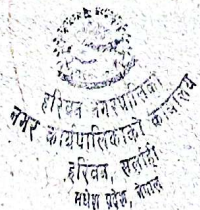 हरिवन नगरपालिका
नगर कार्यपालिकाको कार्यालय
हरिवन, सर्लाही
मधेश प्रदेश, नेपाल